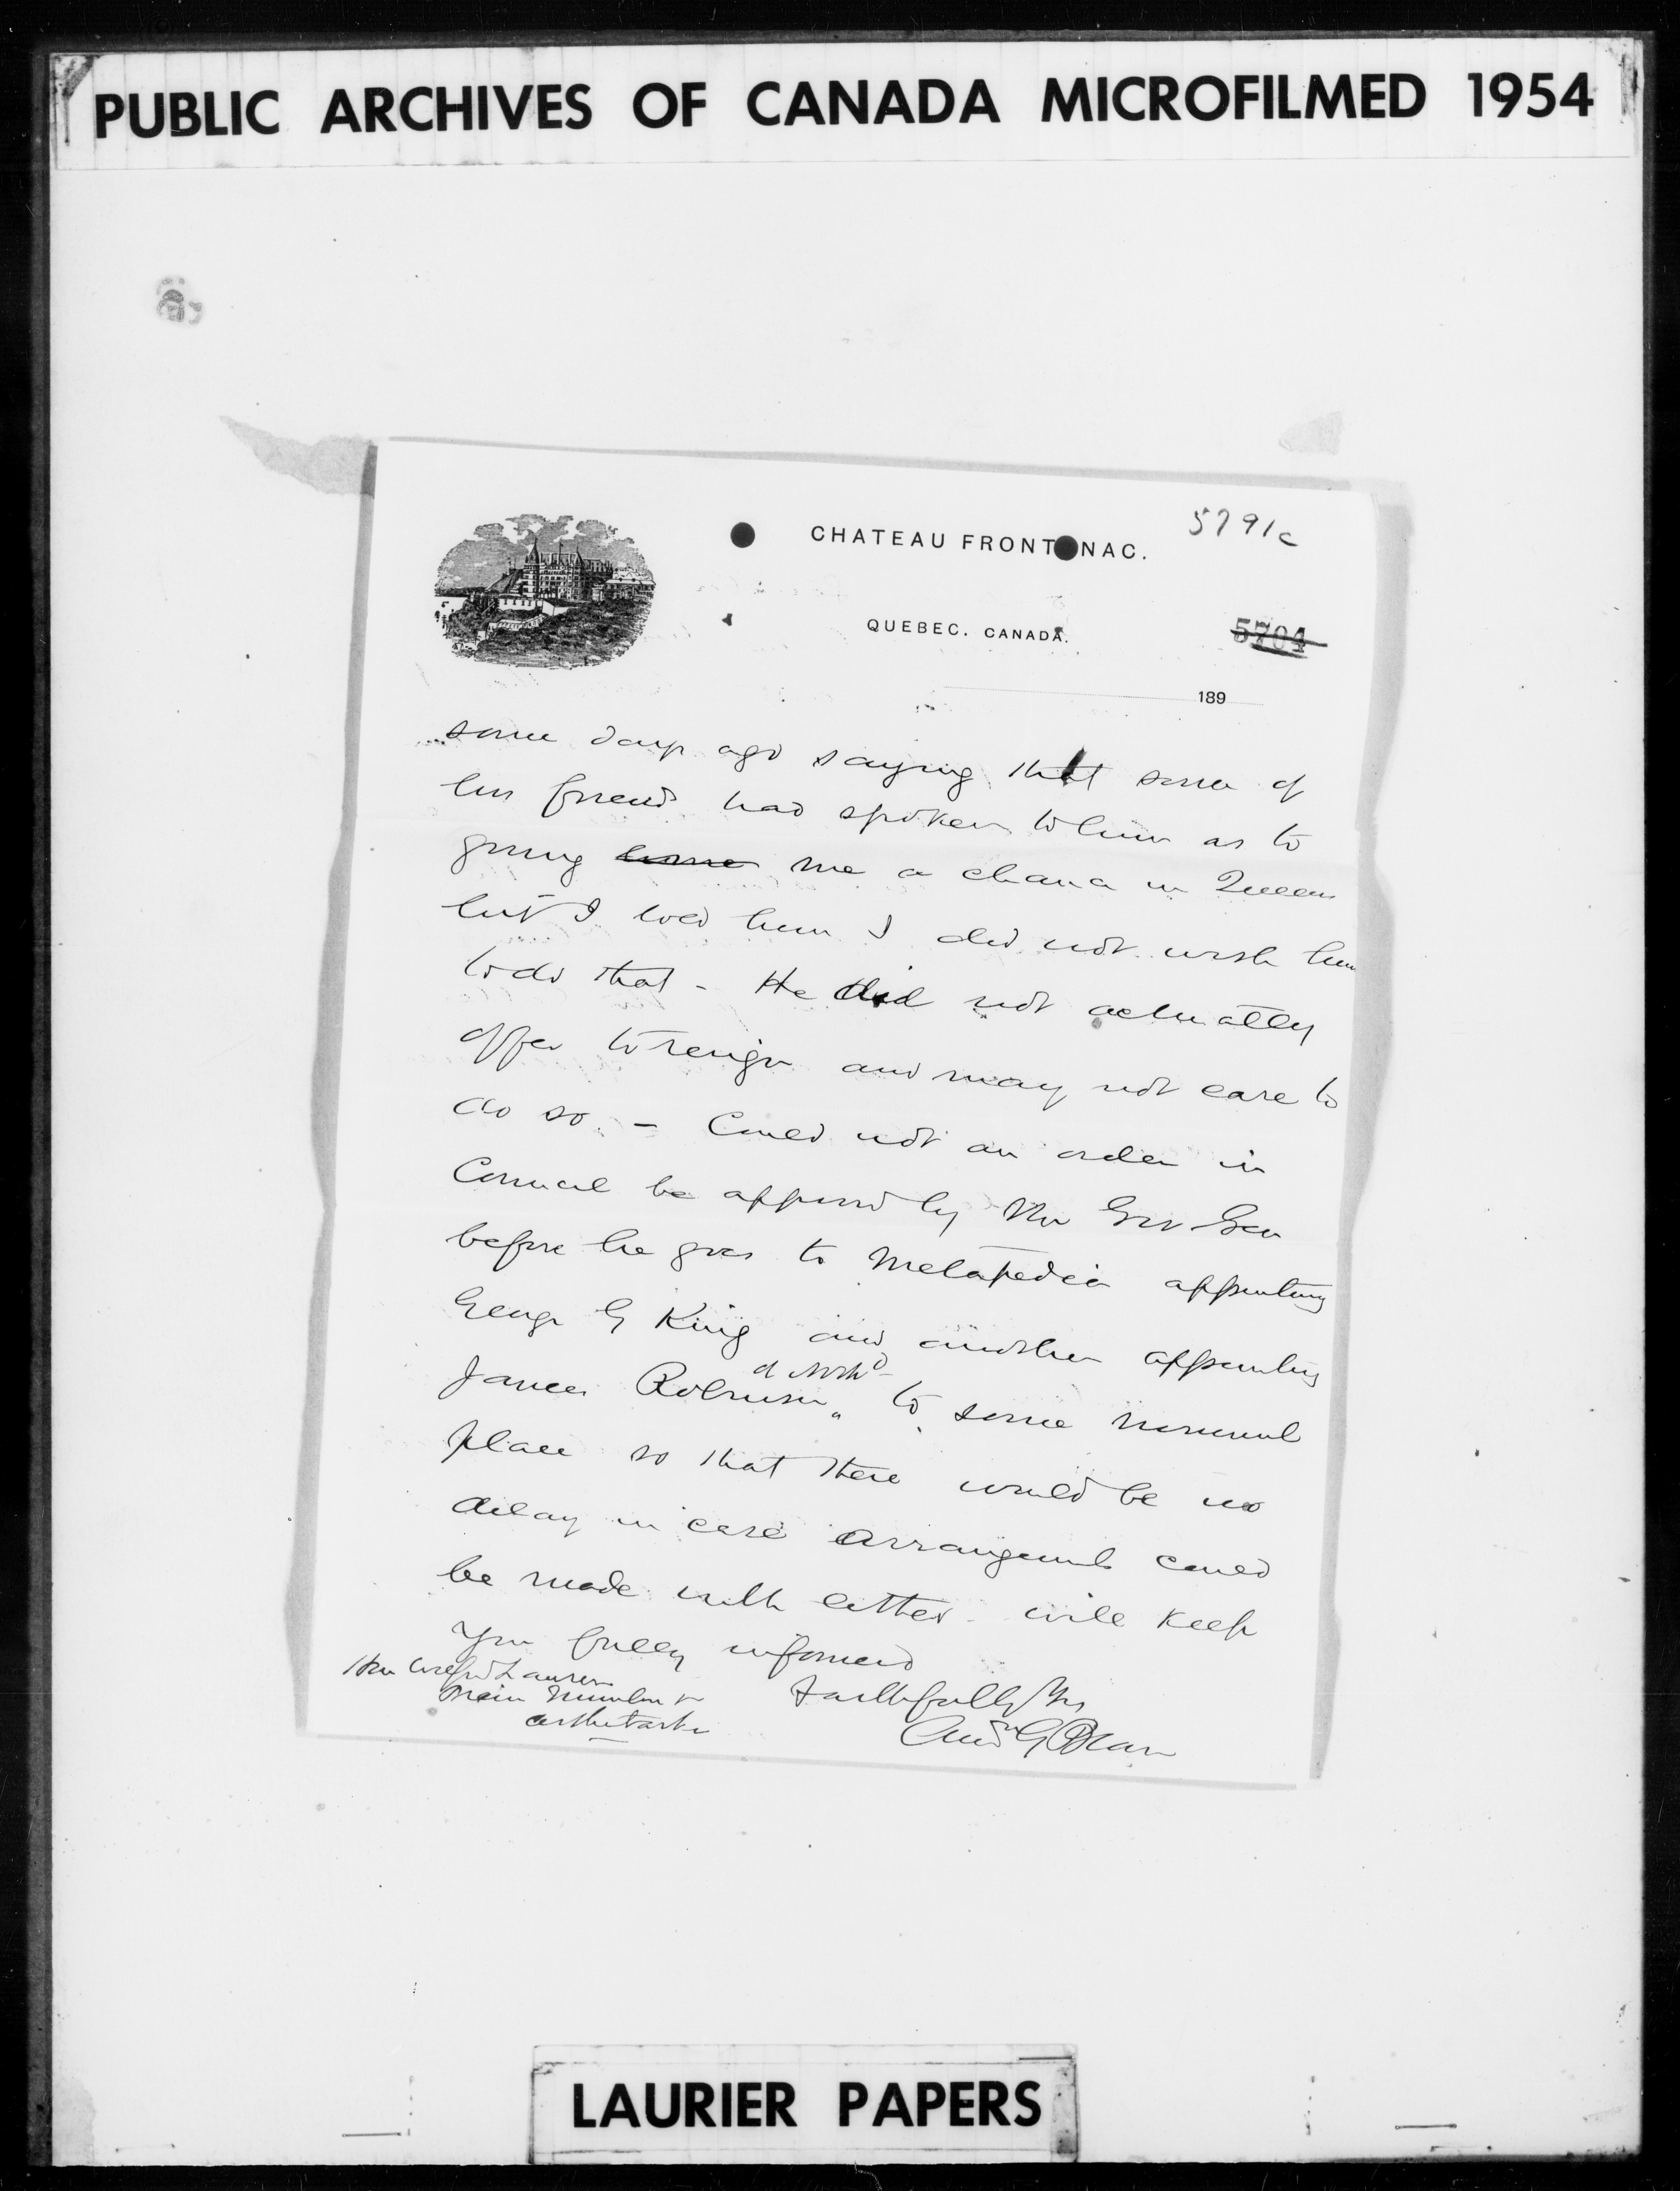 PUBLIC ARCHIVES OF CANADA MICROFILMED 1954
5791c
CHATEAU FRONTENAC.
QUEBEC. CANADA.
5704
189
some days ago saying that some of
his friends had spoken to him as to
giving me a chance in Queens
but I told him I did not wish him
to do that - He did not actually
offer to resign and may not care to
do so. - Could not an order in
Council be approved by the Gov Gen
before he goes to Metapedia appointing
George G King and another appointing
James Robinson of North'd to some nominal
place so that there would be no
delay in case arrangements could
be made with either - will keep
you fully informed
Hon Wilfrid Laurier
Prime Minister
Arthabaska
Faithfully Yrs
Andw G Blair
LAURIER PAPERS